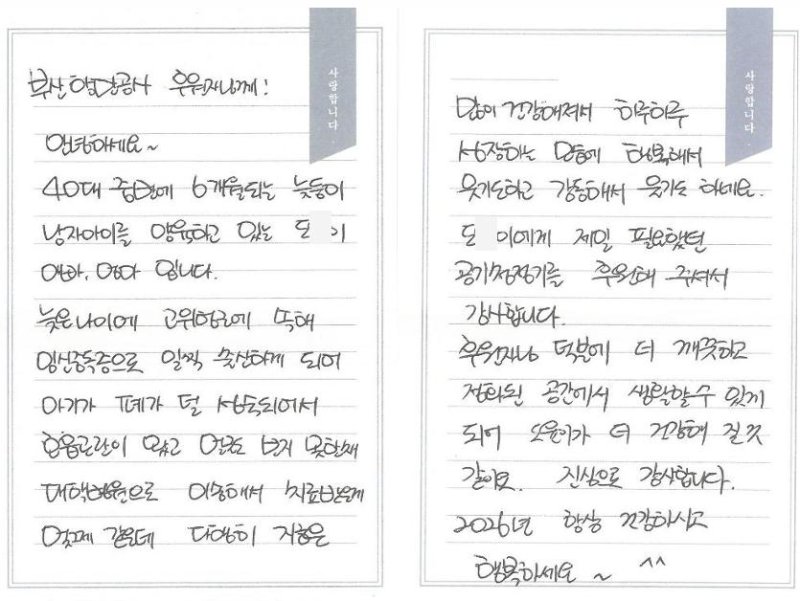 사랑합니다
부산항만공사 후원자님께!
안녕하세요~
40대 중반에 6개월되는 늦둥이
남자아이를 양육하고 있는 도 이
아빠, 엄마 입니다.
늦은나이에 고위험군에 속해
임신중독증으로 일찍 출산하게 되어
아기가 폐가 덜 성숙되어서
호흡곤란이 있고 얼굴도 보지 못한채
대학병원으로 이송해서 치료받은게
엊그제 같은데 다행히 지금은
사랑합니다
많이 건강해져서 하루하루
성장하는 모습에 행복해서
웃기도하고 감동해서 웃기도 하네요.
도 이에게 제일 필요했던
공기청정기를 후원해 주셔서
감사합니다.
후원자님 덕분에 더 깨끗하고
정화된 공간에서 생활할수 있게
되어 도윤이가 더 건강해 질것
같아요. 진심으로 감사합니다.
2026년 항상 건강하시고
행복하세요 ~ ^^